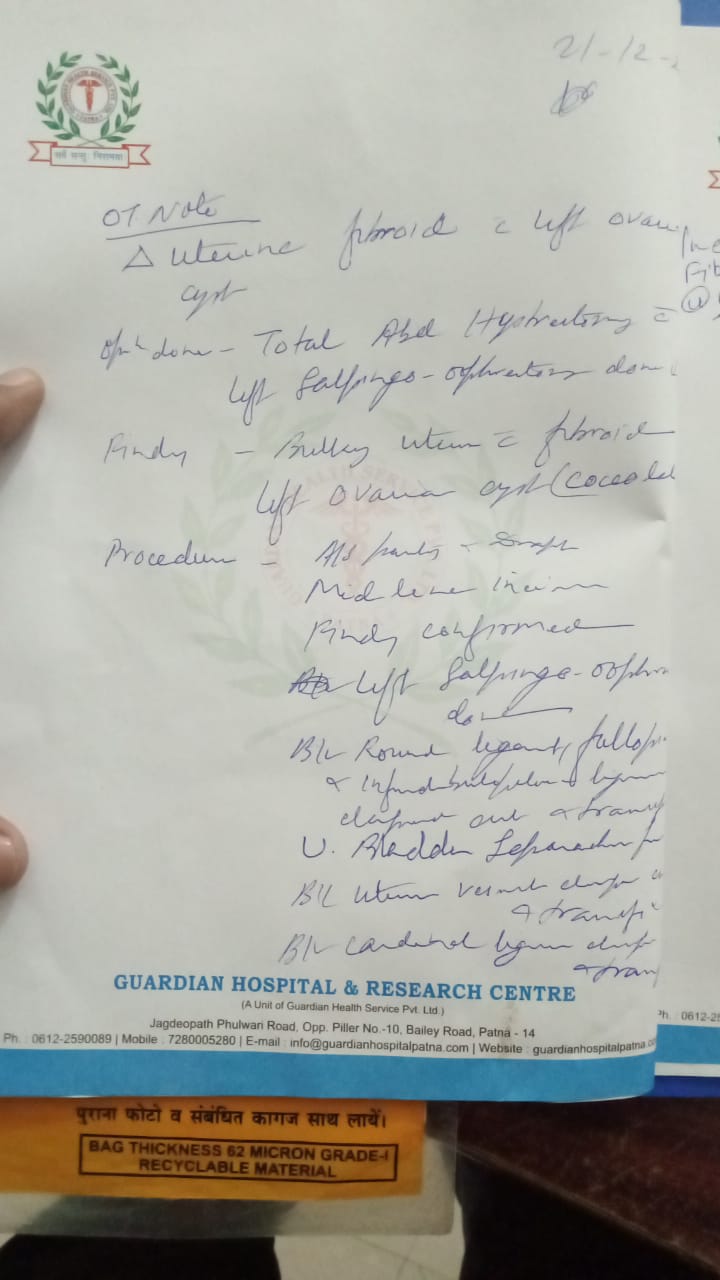 21-12-
सर्वे सन्तु निरामया
OT Note
Δ Uterine fibroid c̄ left ovar
cyst
Opn done - Total Abd Hystrectomy c̄
left Salpingo-ophrectomy done
Findg - Bulky uterus c̄ fibroid
left ovarian cyst (
Procedure - A/s parts
Mid line incision
Findg confirmed
left Salpingo-oophr
done
B/L Round ligament, fallopi
&
clamped cut & transfi
U. Bladder Separated
B/L Uterine vessels clamp
& transfi
B/L cardinal ligam clamp
& tran
GUARDIAN HOSPITAL & RESEARCH CENTRE
(A Unit of Guardian Health Service Pvt. Ltd.)
Jagdeopath Phulwari Road, Opp. Piller No.-10, Bailey Road, Patna - 14
Ph. : 0612-2590089 | Mobile : 7280005280 | E-mail : info@guardianhospitalpatna.com | Website : guardianhospitalpatna.co
Ph. : 0612-25
पुराना फोटो व संबंधित कागज साथ लायें।
BAG THICKNESS 62 MICRON GRADE-I
RECYCLABLE MATERIAL